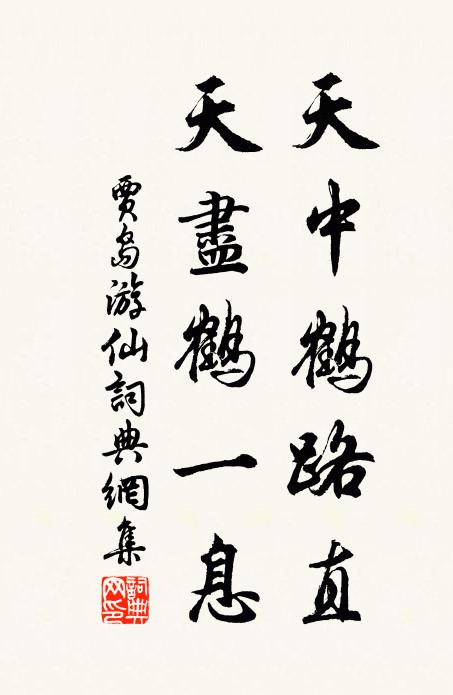 天中鶴路直
天盡鶴一息
賈島游仙詞典網集
詞典網印